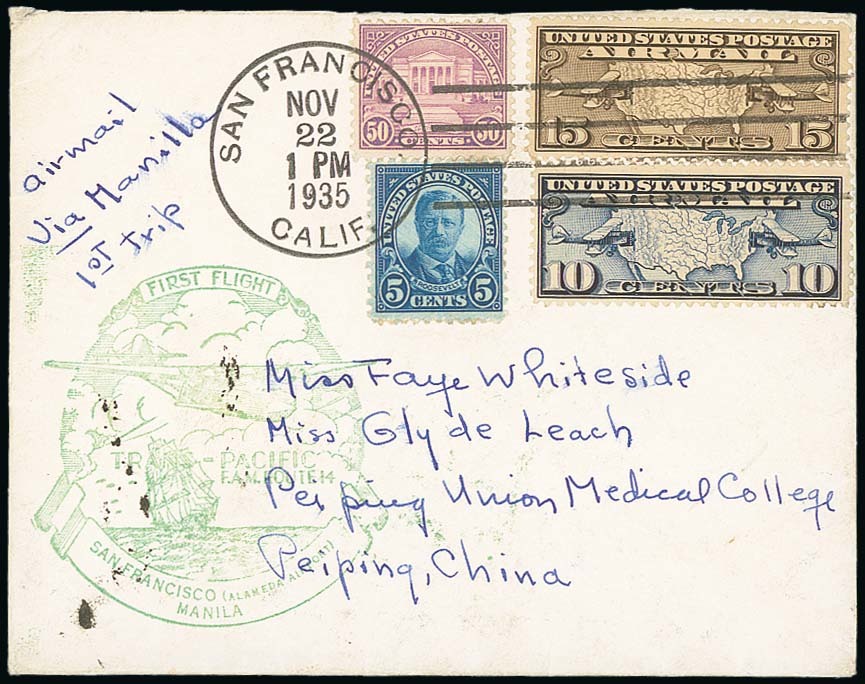 airmail
Via Manilla
1ST trip
SAN FRANCISCO
NOV
22
1 PM
1935
CALIF.
UNITED STATES POSTAGE
50 50
CENTS
UNITED STATES POSTAGE
AIRMAIL
15 15
CENTS
UNITED STATES POSTAGE
ROOSEVELT
5 5
CENTS
UNITED STATES POSTAGE
AIRMAIL
10 10
CENTS
FIRST FLIGHT
TRANS-PACIFIC
F.A.M. ROUTE 14
SAN FRANCISCO (ALAMEDA AIRPORT)
MANILA
Miss Faye Whiteside
Miss Glyde Leach
Peiping Union Medical College
Peiping, China